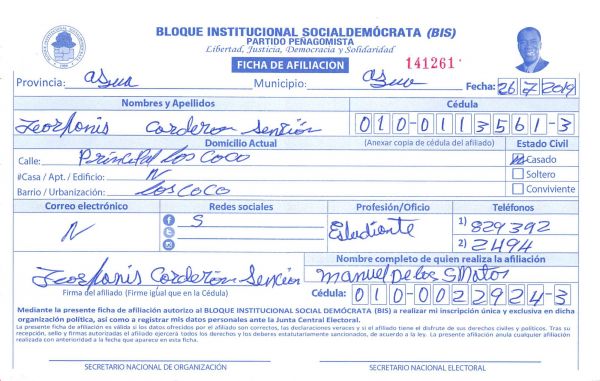 BLOQUE INSTITUCIONAL SOCIALDEMÓCRATA (BIS)
PARTIDO PEÑAGOMISTA
Libertad, Justicia, Democracia y Solidaridad
FICHA DE AFILIACION
141261
Provincia: Asua
Municipio: Asua
Fecha: 26 7 2019
Nombres y Apellidos
Cédula
Corderon Sención
010-0113561-3
Domicilio Actual
(Anexar copia de cédula del afiliado)
Estado Civil
Calle: Principal Los Coco
Casado
#Casa / Apt. / Edificio: N
Soltero
Barrio / Urbanización: Los Coco
Conviviente
Correo electrónico
Redes sociales
Profesión/Oficio
Teléfonos
N
S
Estudiante
1) 829 392
2) 2494
Nombre completo de quien realiza la afiliación
Corderon Sención
Manuel De los S Matos
Firma del afiliado (Firme igual que en la Cédula)
Cédula: 010-0022924-3
Mediante la presente ficha de afiliación autorizo al BLOQUE INSTITUCIONAL SOCIAL DEMÓCRATA (BIS) a realizar mi inscripción única y exclusiva en dicha
organización política, así como a registrar mis datos personales ante la Junta Central Electoral.
La presente ficha de afiliación es válida si los datos ofrecidos por el afiliado son correctos, las declaraciones veraces y si el afiliado tiene el disfrute de sus derechos civiles y políticos. Tras su
recepción, sello y firmas autorizadas el afiliado ejercerá todos los derechos y los deberes estatutariamente sancionados, de acuerdo a la ley. La presente afiliación anula cualquier afiliación
realizada con anterioridad a la fecha que aparece en esta ficha.
SECRETARIO NACIONAL DE ORGANIZACIÓN
SECRETARIO NACIONAL ELECTORAL